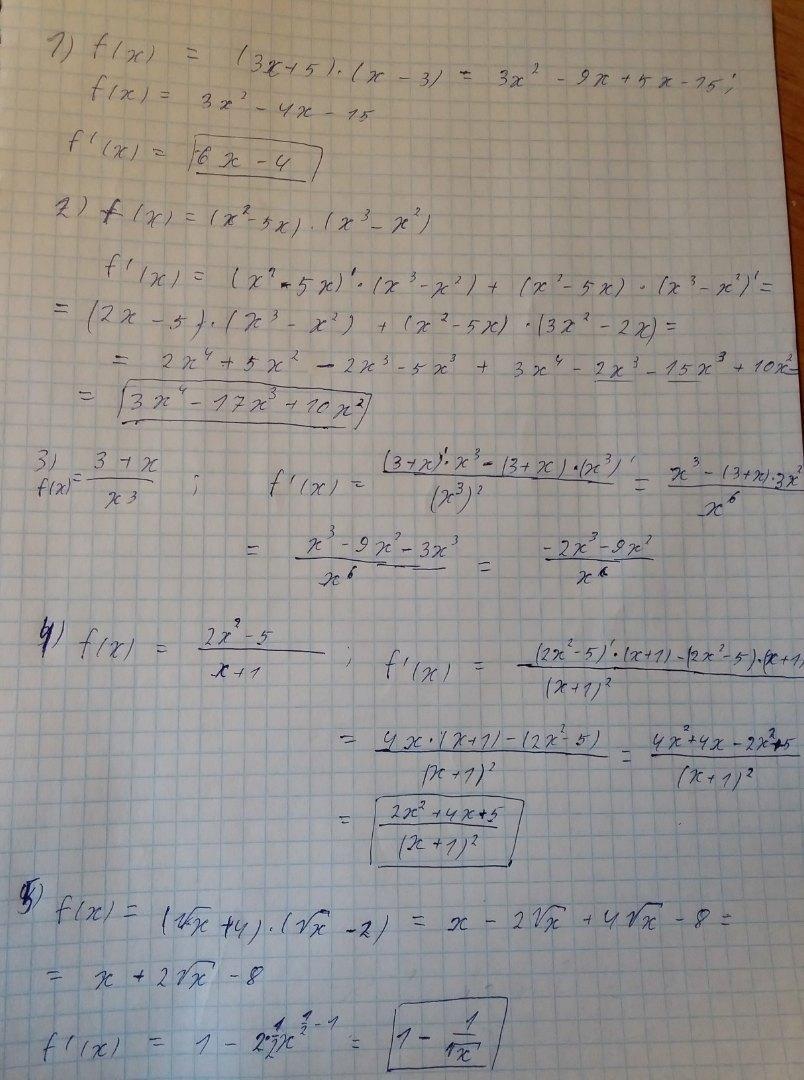 1) f(x) = (3x+5)·(x-3) = 3x² - 9x + 5x - 15;
f(x) = 3x² - 4x - 15
f'(x) = 6x - 4
2) f(x) = (x² - 5x)·(x³ - x²)
f'(x) = (x² - 5x)'·(x³ - x²) + (x² - 5x)·(x³ - x²)' =
= (2x - 5)·(x³ - x²) + (x² - 5x)·(3x² - 2x) =
= 2x⁴ + 5x² - 2x³ - 5x³ + 3x⁴ - 2x³ - 15x³ + 10x² =
= 3x⁴ - 17x³ + 10x²
3) f(x) = (3+x)/x³ ; f'(x) = ((3+x)'·x³ - (3+x)·(x³)')/(x³)² = (x³ - (3+x)·3x²)/x⁶
= (x³ - 9x² - 3x³)/x⁶ = (-2x³ - 9x²)/x⁶
4) f(x) = (2x² - 5)/(x+1) ; f'(x) = ((2x² - 5)'·(x+1) - (2x² - 5)·(x+1)/(x+1)²
= (4x·(x+1) - (2x² - 5))/(x+1)² = (4x² + 4x - 2x² + 5)/(x+1)²
= (2x² + 4x + 5)/(x+1)²
5) f(x) = (√x + 4)·(√x - 2) = x - 2√x + 4√x - 8 =
= x + 2√x - 8
f'(x) = 1 - 2·½x^(½ - 1) = 1 - 1/√x